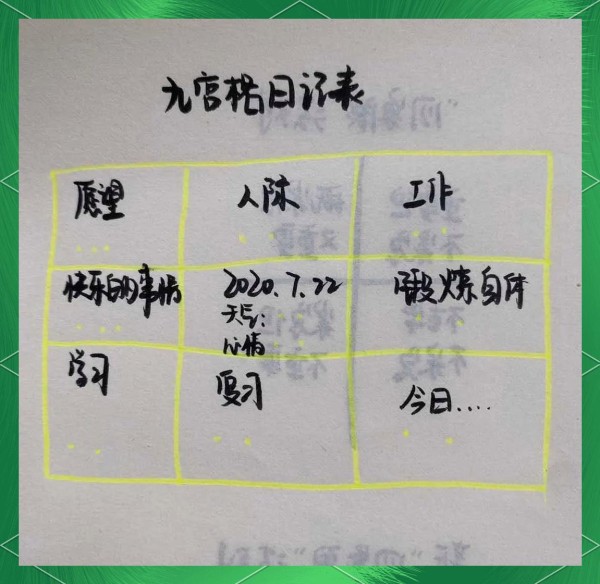 九宫格日记表
愿望
人际
工作
快乐的事情
2020.7.22
天气:
心情
锻炼身体
学习
复习
今日....